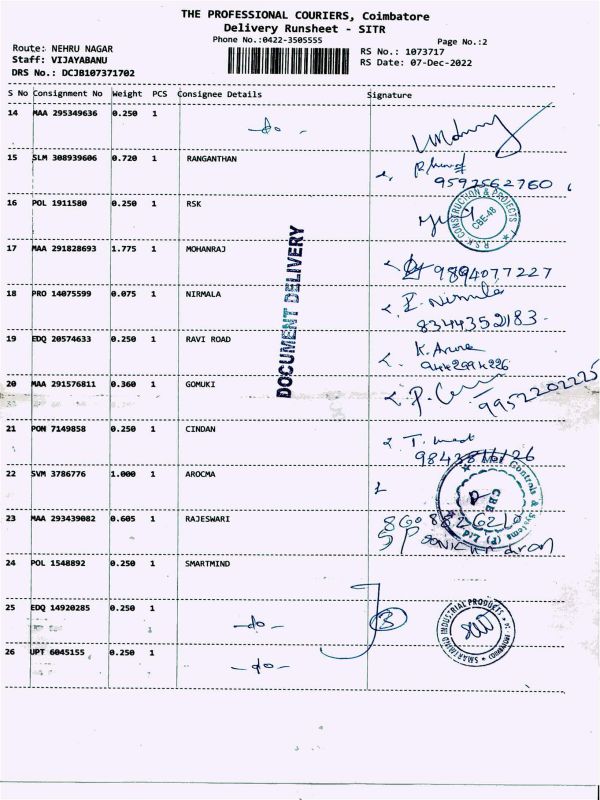 THE PROFESSIONAL COURIERS, Coimbatore
Delivery Runsheet - SITR
Phone No.:0422-3505555
Page No.:2
Route: NEHRU NAGAR
RS No.: 1073717
Staff: VIJAYABANU
RS Date: 07-Dec-2022
DRS No.: DCJB107371702
S No Consignment No Weight PCS Consignee Details Signature
14 MAA 295349636 0.250 1 -do-
15 SLM 308939606 0.720 1 RANGANTHAN
9592562760
16 POL 1911580 0.250 1 RSK
R.S.K CONSTRUCTION & PROJECTS CBE-48
17 MAA 291828693 1.775 1 MOHANRAJ
9894077227
DOCUMENT DELIVERY
18 PRO 14075599 0.075 1 NIRMALA
8344352183
19 EDQ 20574633 0.250 1 RAVI ROAD
K.
9442994226
20 MAA 291576811 0.360 1 GOMUKI
P.
9952202225
21 POM 7149858 0.250 1 CINDAN
T.
9843816126
22 SVM 3786776 1.000 1 AROCMA
Controls & Systems (P) Ltd CBE
23 MAA 293439082 0.605 1 RAJESWARI
8608826210
24 POL 1548892 0.250 1 SMARTMIND
25 EDQ 14920285 0.250 1 -do-
3
SMARTMIND INDUSTRIAL PRODUCTS
26 UPT 6045155 0.250 1 -do-